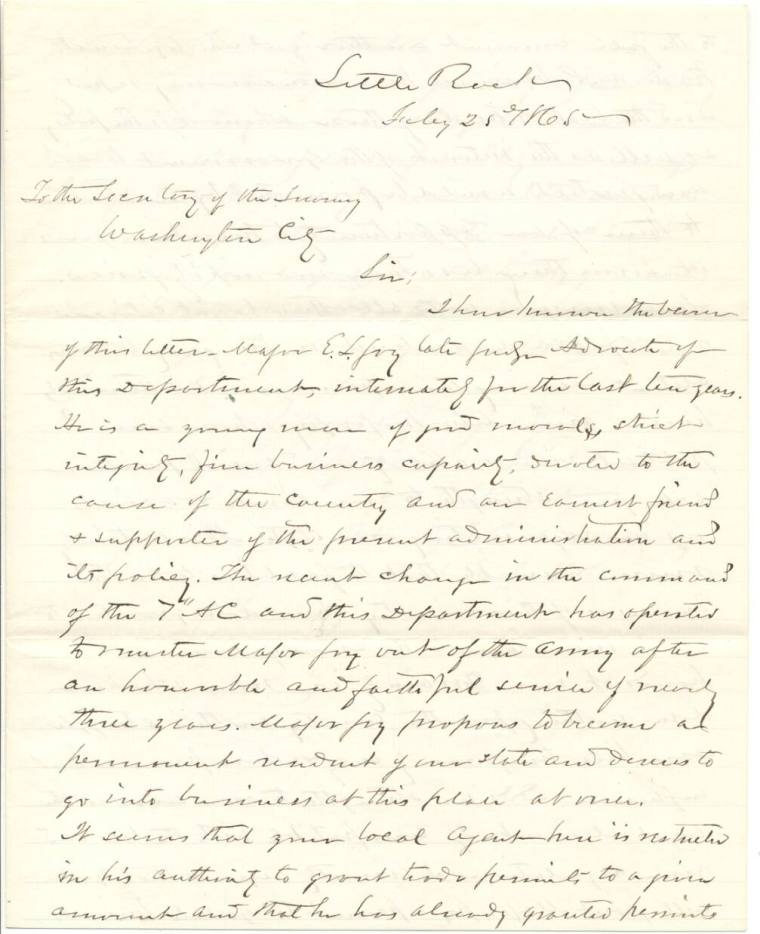 Little Rock
Feby 25th 1865
To the Secretary of the Treasury
Washington City
Sir:
I have known the bearer
of this letter - Major E. L. Joy late Judge Advocate of
this Department, intimately for the last ten years.
He is a young man of good morals, strict
integrity, fine business capacity, devoted to the
cause of the Country and an Earnest friend
& supporter of the present administration and
its policy. The recent change in the command
of the 7" AC and this Department has operated
to muster Major Joy out of the Army after
an honorable and faithful service of nearly
three years. Major Joy proposes to become a
permanent resident of our state and desires to
go into business at this place at once.
It seems that your local Agent here is restricted
in his authority to grant trade permits to a given
amount and that he has already granted permits